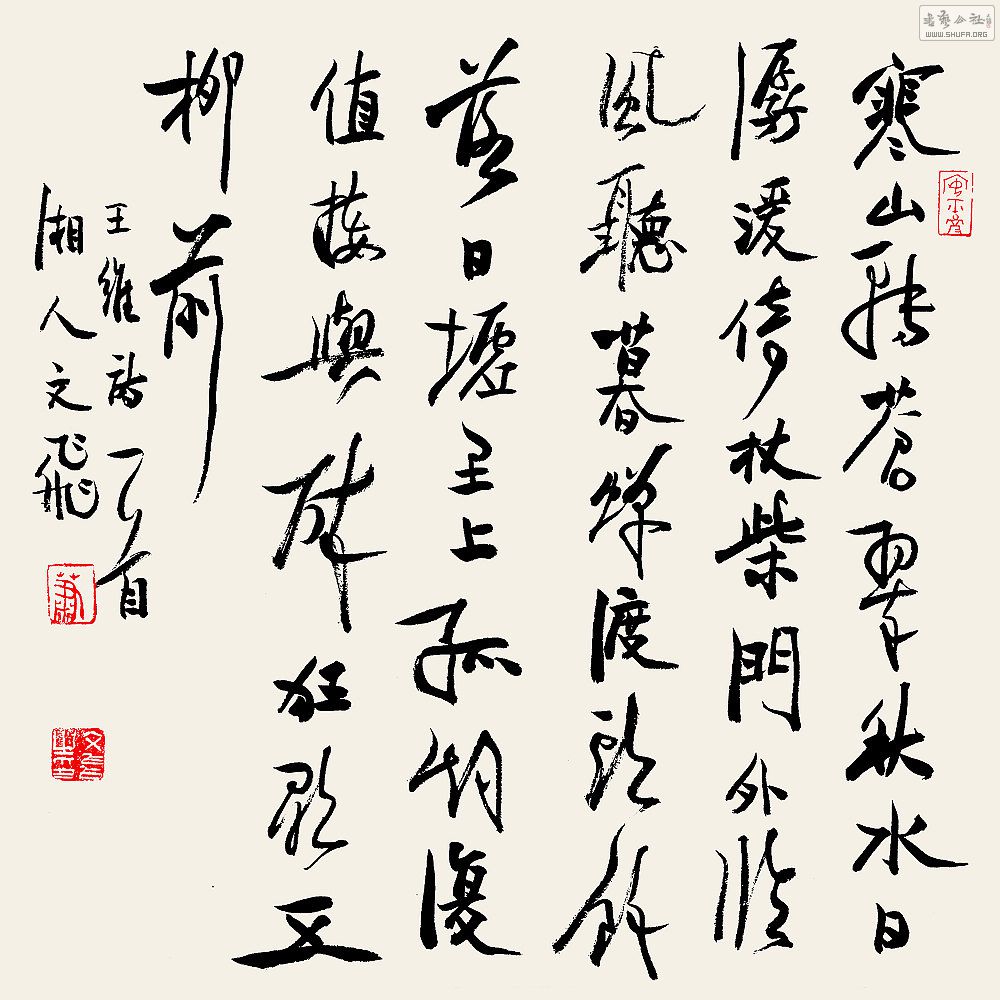 寒山轉蒼翠秋水日
潺湲倚杖柴門外臨
風聽暮蟬渡頭餘
落日墟里上孤烟復
值接輿醉狂歌五
柳前
王維詩一首
湘人文飛
书艺公社
WWW.SHUFA.ORG